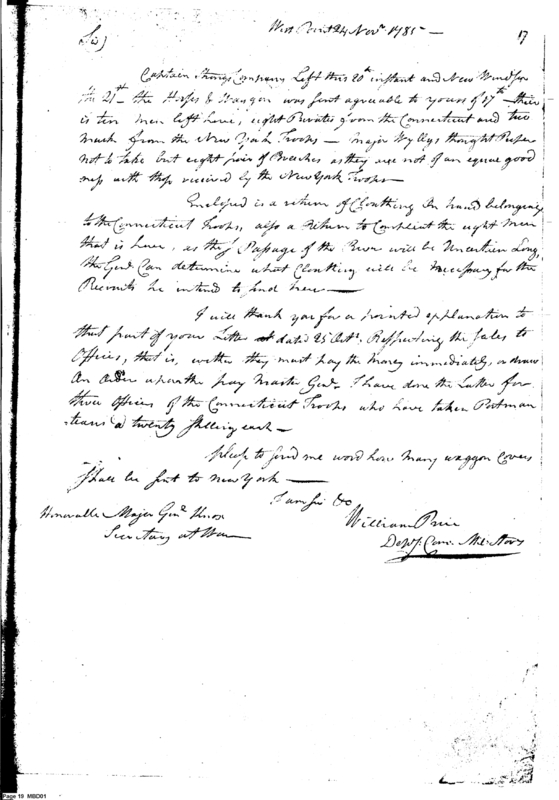 West Point 24 Novr. 1785 — 17
Sir)
Captain Strongs Company Left this 20th instant and New Windsor
the 21st — the Horses & Waggon was sent agreeable to yours of 17th — their
is ten men left here, eight Privates from the Connecticut and two
from the New York Troops — Major Wyllys thought Proper
not to take but eight pair of Breeches as they are not of an equal good
ness with those received by the New York Troops —
Enclosed is a return of Cloathing In hand belonging
to the Connecticut Troops, also a Return to Compleat the eight men
that is here, as the Passage of the River will be Uncertain Long,
the Genl. Can determine what Cloathing will be Necessary for the
Recruits he intend to send here —
I will thank you for a pointed explanation to
that part of your Letter dated 25 Octr. Respecting the Sales to
Officers, that is, wether they must pay the Money immediately, or draw
An Order upon the pay Master Genl. I have done the Latter for
three officers of the Connecticut Troops who have taken Portman
teaus a twenty Shilling each —
please to send me word how many waggon Covers
Shall be sent to New York —
I am Sir &c
Honorable Major Genl. Knox
William Price
Secretary at War
Depy. Com. Mil. Stores
Page 19 MBD01